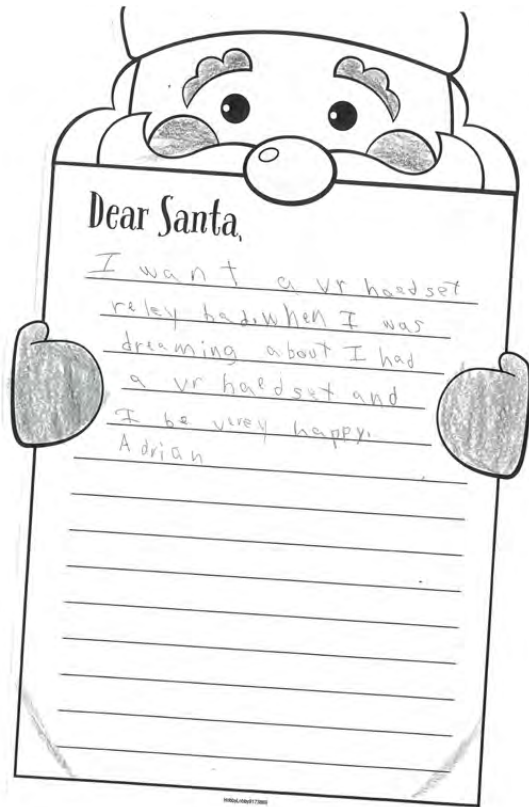 Dear Santa,
I want a vr haedset
reley bad. when I was
dreaming about I had
a vr haedset and
I be verey happy.
Adrian